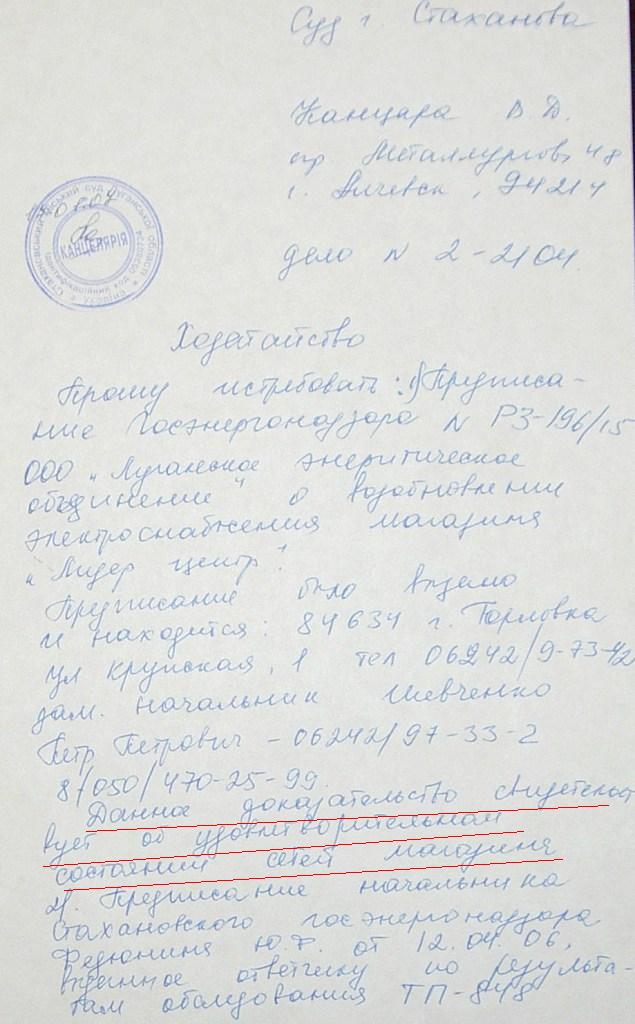 Суд г. Стаханова
Канцара В. Д.
пр Металлургов 48
г. Алчевск, 94214
КАНЦЕЛЯРІЯ
дело N 2-2104
Ходатайство
Прошу истребовать: 1) Предписа-
ние Госэнергонадзора N РЗ-196/15
ООО „Луганское энергитическое
объединение" о возобновлении
электроснабжения магазина
„Лидер центр".
Предписание было видемо
и находится: 84634 г. Горловка
ул Крупская, 1 тел 06242/9-73-42
зам. начальник Шевченко
Петр Петрович - 06242/97-33-2
8/050/470-25-99.
Данное доказательство свидетельст
вует об удовлетворительном
состоянии сетей магазина
2). Предписание начальника
Стахановского госэнергонадзора
Федюнина Ю.Ф. от 12.04.06,
виденное ответчику по результа-
там обследования ТП-848